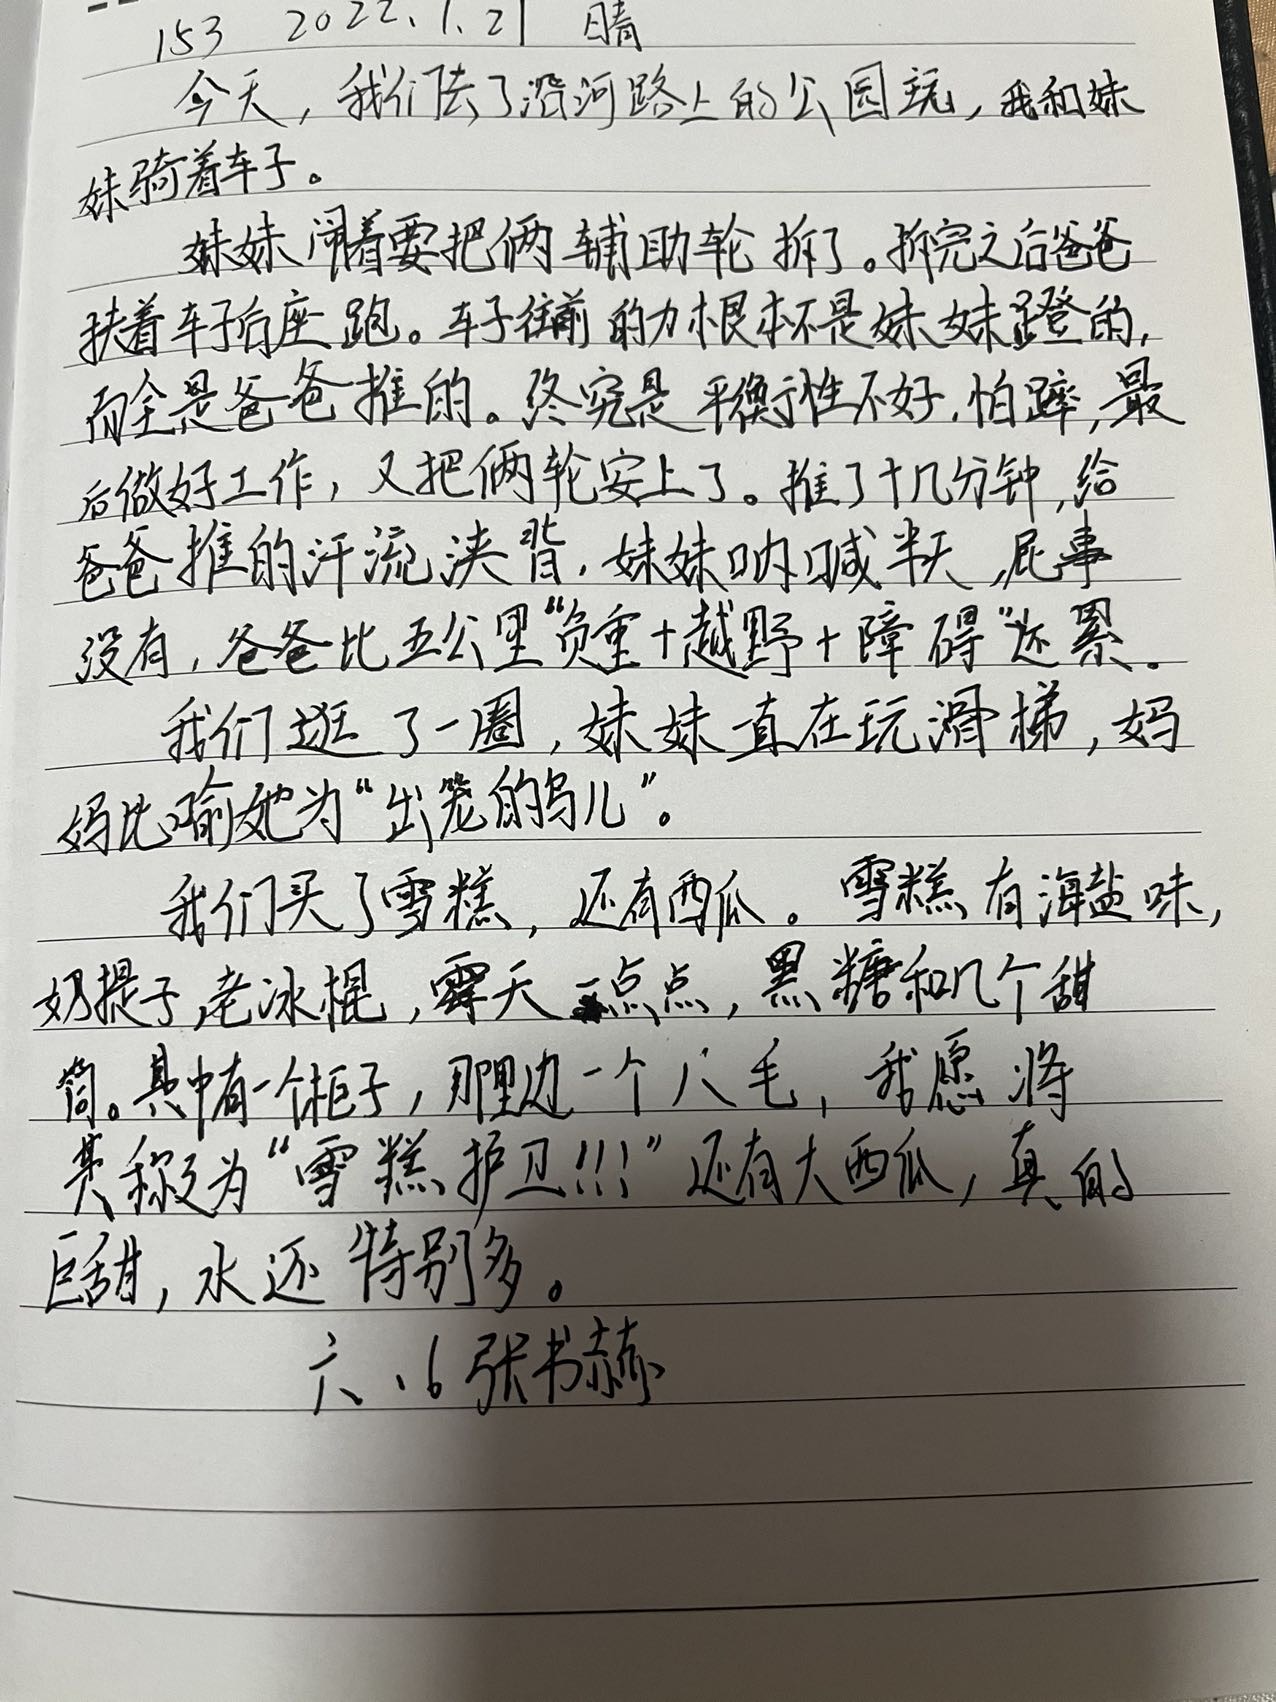 153 2022.1.21 晴
今天，我们去了沿河路上的公园玩，我和妹
妹骑着车子。
妹妹闹着要把俩辅助轮拆了。拆完之后爸爸
扶着车子后座跑。车子往前的力根本不是妹妹蹬的，
而全是爸爸推的。终究是平衡性不好，怕蹿，最
后做好工作，又把俩轮安上了。推了十几分钟，给
爸爸推的汗流浃背，妹妹呐喊半天，屁事
没有，爸爸比五公里“负重+越野+障碍”还累。
我们逛了一圈，妹妹一直在玩滑梯，妈
妈比喻她为“出笼的鸟儿”。
我们买了雪糕，还有西瓜。雪糕有海盐味，
奶提子，老冰棍，霹天一点点，黑糖和几个甜
筒。其中有一个柜子，那里边一个八毛，我愿将
其称之为“雪糕护卫!!!”还有大西瓜，真的
巨甜，水还特别多。
六.6 张书赫